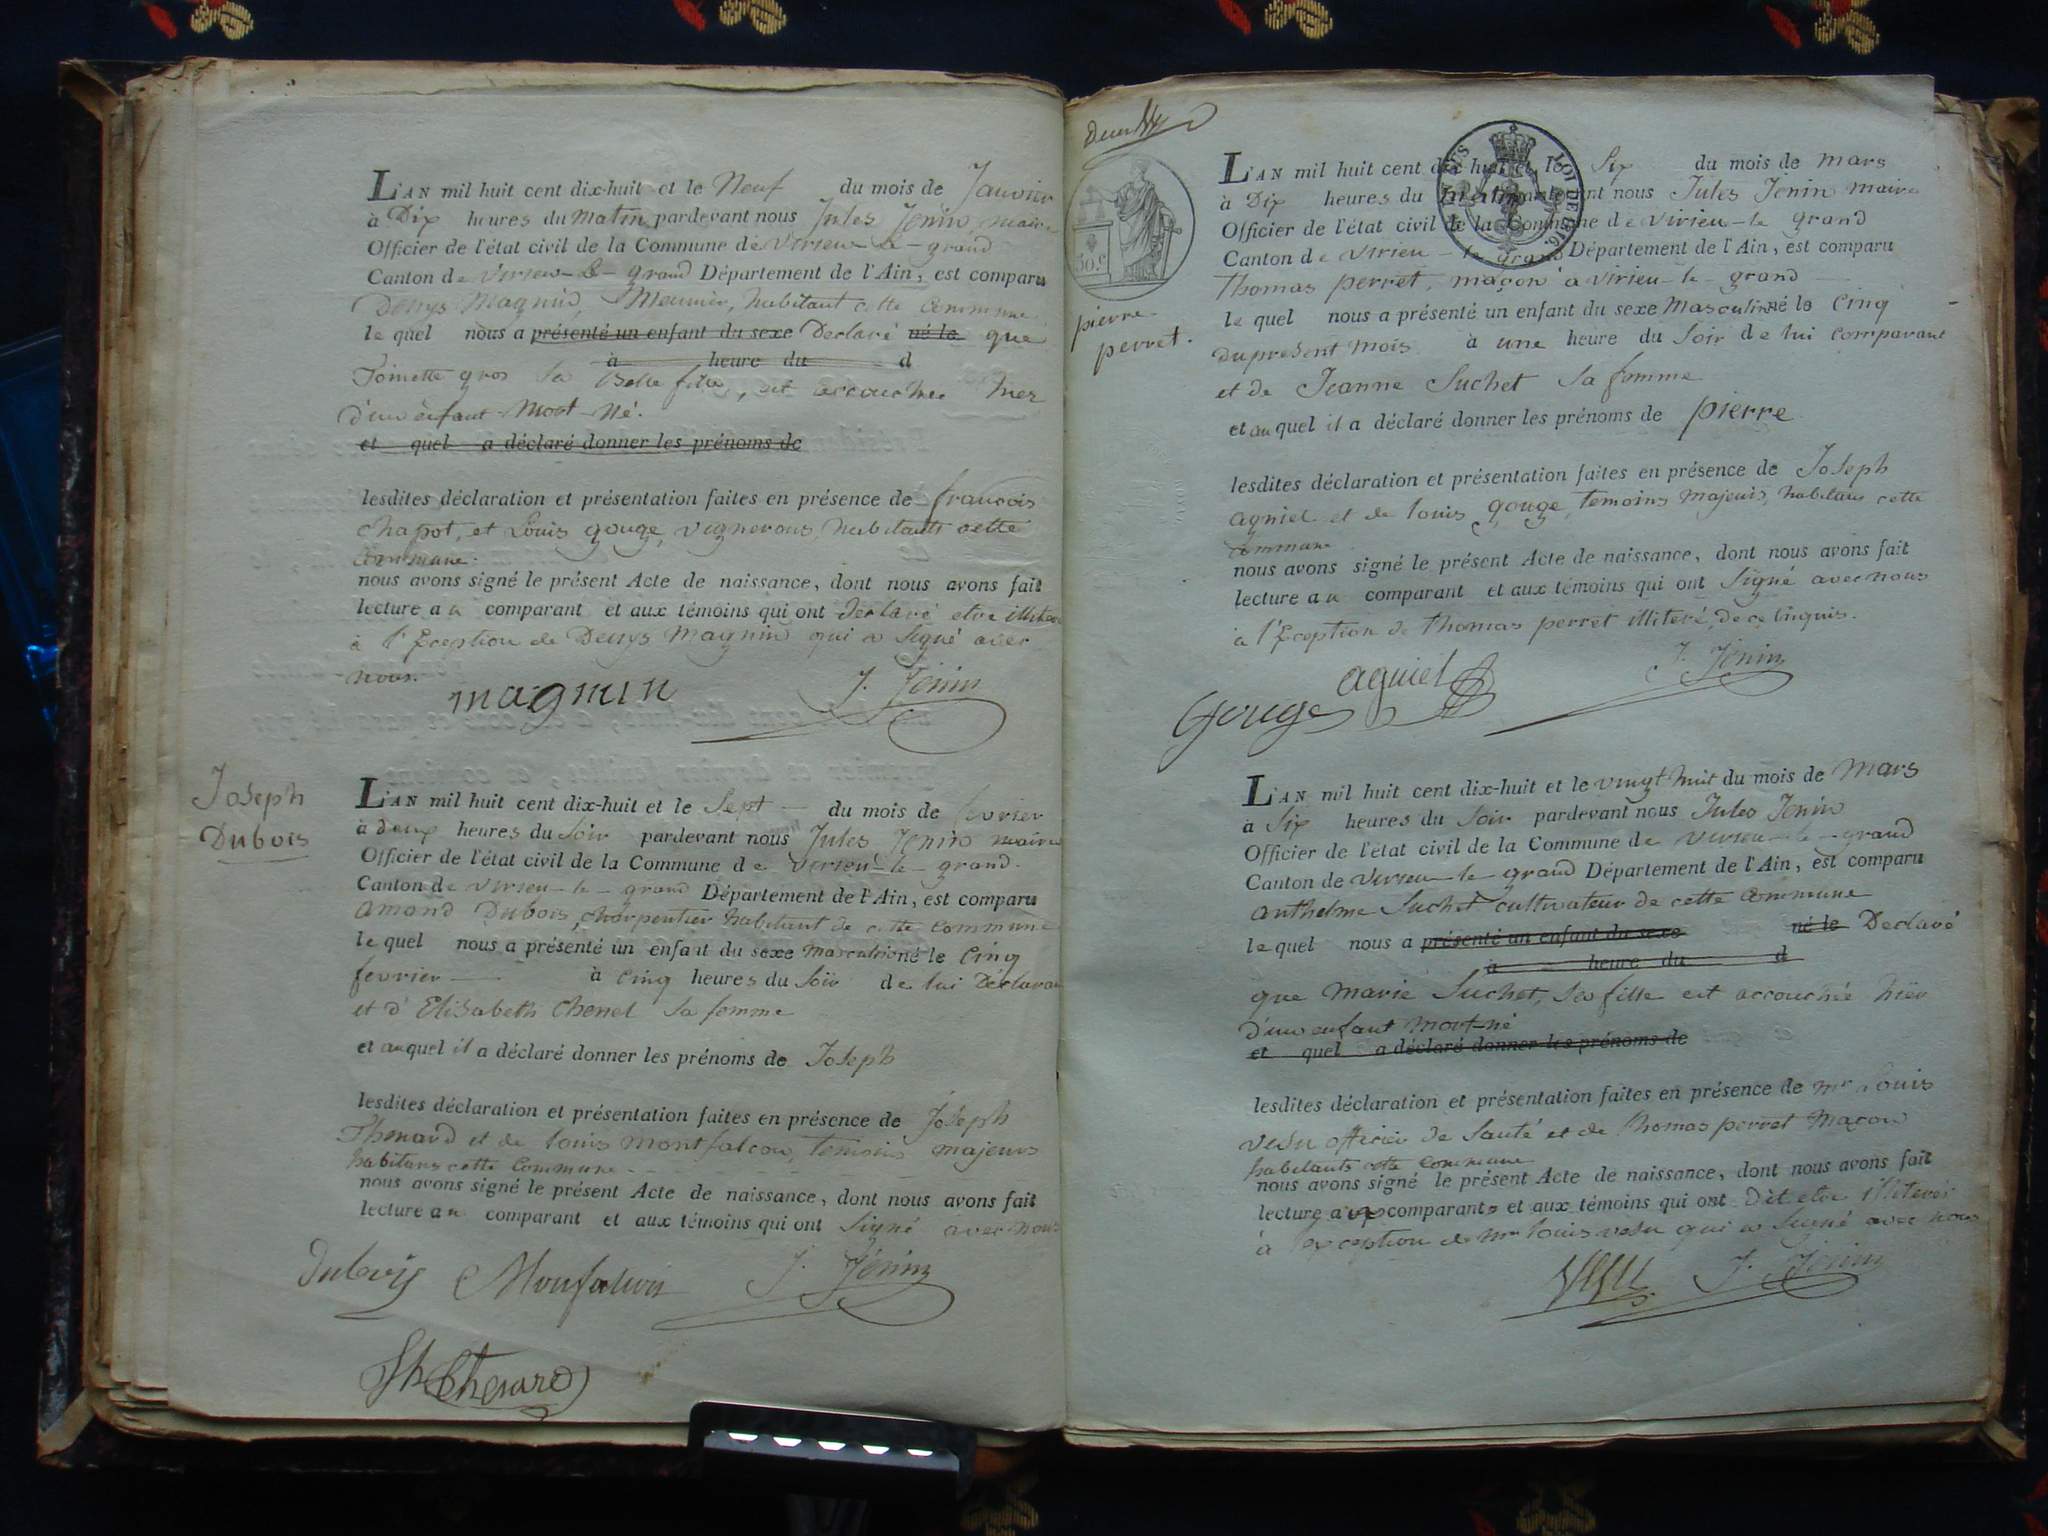 L'AN mil huit cent dix-huit et le Neuf du mois de Janvier
à Dix heures du Matin pardevant nous Jules Jenin, maire
Officier de l'état civil de la Commune de Virieu-le-grand
Canton de Virieu-le-grand Département de l'Ain, est comparu
Denys Magnin, Meunier, habitant cette Commune
le quel nous a présenté un enfant du sexe Declaré né le que
à heure du d
gros sa Belle fille, est accouchée hier
d'un enfant Mort-Né.
et quel a déclaré donner les prénoms de
lesdites déclaration et présentation faites en présence de françois
Chapot, et Louis gouge, vignerons habitants cette
Commune.
nous avons signé le présent Acte de naissance, dont nous avons fait
lecture au comparant et aux témoins qui ont declaré etre
à l'Exception de Denys Magnin qui a Signé avec
nous.
magnin J. Jenin
Joseph
Dubois
L'AN mil huit cent dix-huit et le Sept du mois de fevrier
à deux heures du Soir pardevant nous Jules Jenin maire
Officier de l'état civil de la Commune de Virieu-le-grand.
Canton de Virieu-le-grand Département de l'Ain, est comparu
Amand Dubois, Charpentier habitant de cette Commune
le quel nous a présenté un enfant du sexe masculin né le Cinq
fevrier à Cinq heures du Soir de lui Déclarant
et d'Elisabeth Chenel sa femme
et auquel il a déclaré donner les prénoms de Joseph
lesdites déclaration et présentation faites en présence de Joseph
Thenard et de Louis Montfalcon, temoins majeurs
habitans cette Commune
nous avons signé le présent Acte de naissance, dont nous avons fait
lecture au comparant et aux témoins qui ont Signé avec nous
Dubois Monfalcon J. Jenin
Thenard
pierre
perret.
30.c
L'AN mil huit cent dix-huit et le Six du mois de Mars
à Dix heures du Matin pardevant nous Jules Jenin maire
Officier de l'état civil de la Commune de Virieu-le-grand
Canton de Virieu-le-grand Département de l'Ain, est comparu
Thomas perret, maçon à Virieu-le-grand
le quel nous a présenté un enfant du sexe Masculin né le Cinq
Du present Mois à une heure du Soir de lui Comparant
et de Jeanne Suchet sa femme
et au quel il a déclaré donner les prénoms de pierre
lesdites déclaration et présentation faites en présence de Joseph
agniel et de Louis gouge, temoins majeurs, habitans cette
Commune
nous avons signé le présent Acte de naissance, dont nous avons fait
lecture au comparant et aux témoins qui ont Signé avec nous
à l'Eception de Thomas perret illiteré, de ce Enquis.
agniel J. Jenin
Gouge
L'AN mil huit cent dix-huit et le vingt huit du mois de Mars
à Six heures du Soir pardevant nous Jules Jenin
Officier de l'état civil de la Commune de Virieu-le-grand
Canton de Virieu-le-grand Département de l'Ain, est comparu
Anthelme Suchet cultivateur de cette Commune
le quel nous a présenté un enfant du sexe né le Declaré
à heure du d
que Marie Suchet, sa fille est accouchée hïer
d'un enfant mort-né
et quel a déclaré donner les prénoms de
lesdites déclaration et présentation faites en présence de mr Louis
Vesu officier de Santé et de thomas perret Maçon
habitants cette Commune
nous avons signé le présent Acte de naissance, dont nous avons fait
lecture aux comparants et aux témoins qui ont Dit etre illiterés
à l'exception de Mr Louis Vesu qui a Signé avec nous
Vesu J. Jenin